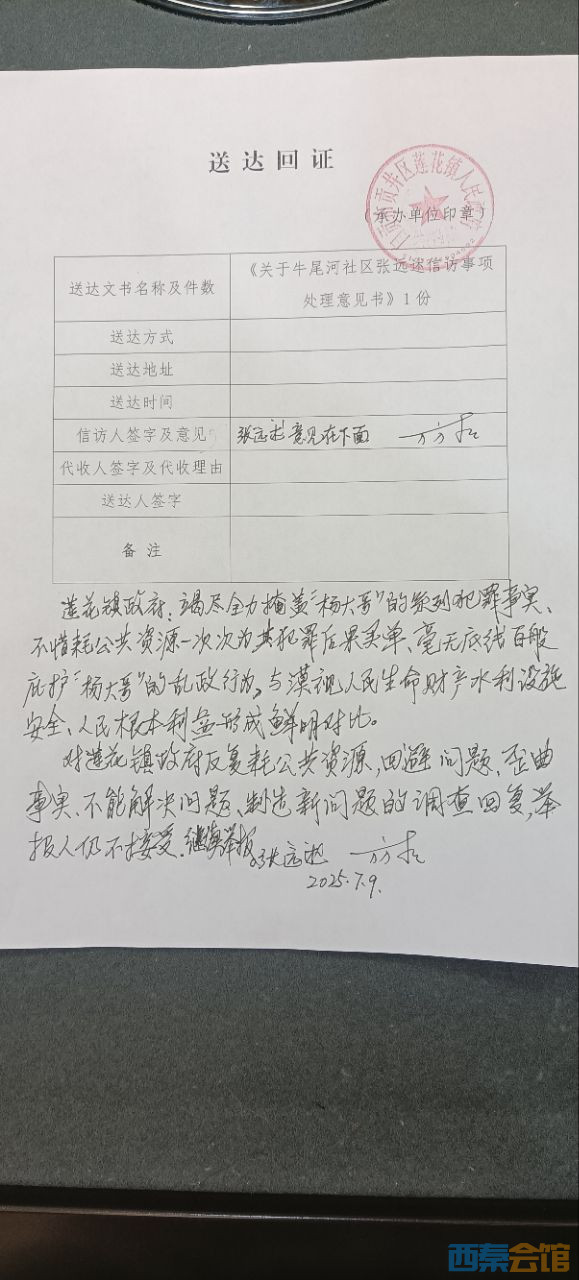 送达回证
贡井区莲花镇人民
(承办单位印章)
送达文书名称及件数
《关于牛尾河社区张远述信访事项
处理意见书》1份
送达方式
送达地址
送达时间
信访人签字及意见
意见在下面
代收人签字及代收理由
送达人签字
备注
莲花镇政府、竭尽全力掩盖“杨大哥”的系列犯罪事实、
不惜耗公共资源一次次为其犯罪后果买单、毫无底线百般
庇护“杨大哥”的乱政行为,与漠视人民生命财产水利设施
安全、人民根本利益形成鲜明对比。
对莲花镇政府反复耗公共资源,回避问题、歪曲
事实、不能解决问题、制造新问题的调查回复,举
报人仍不接受.继续举报
2025.7.9.
西秦会馆